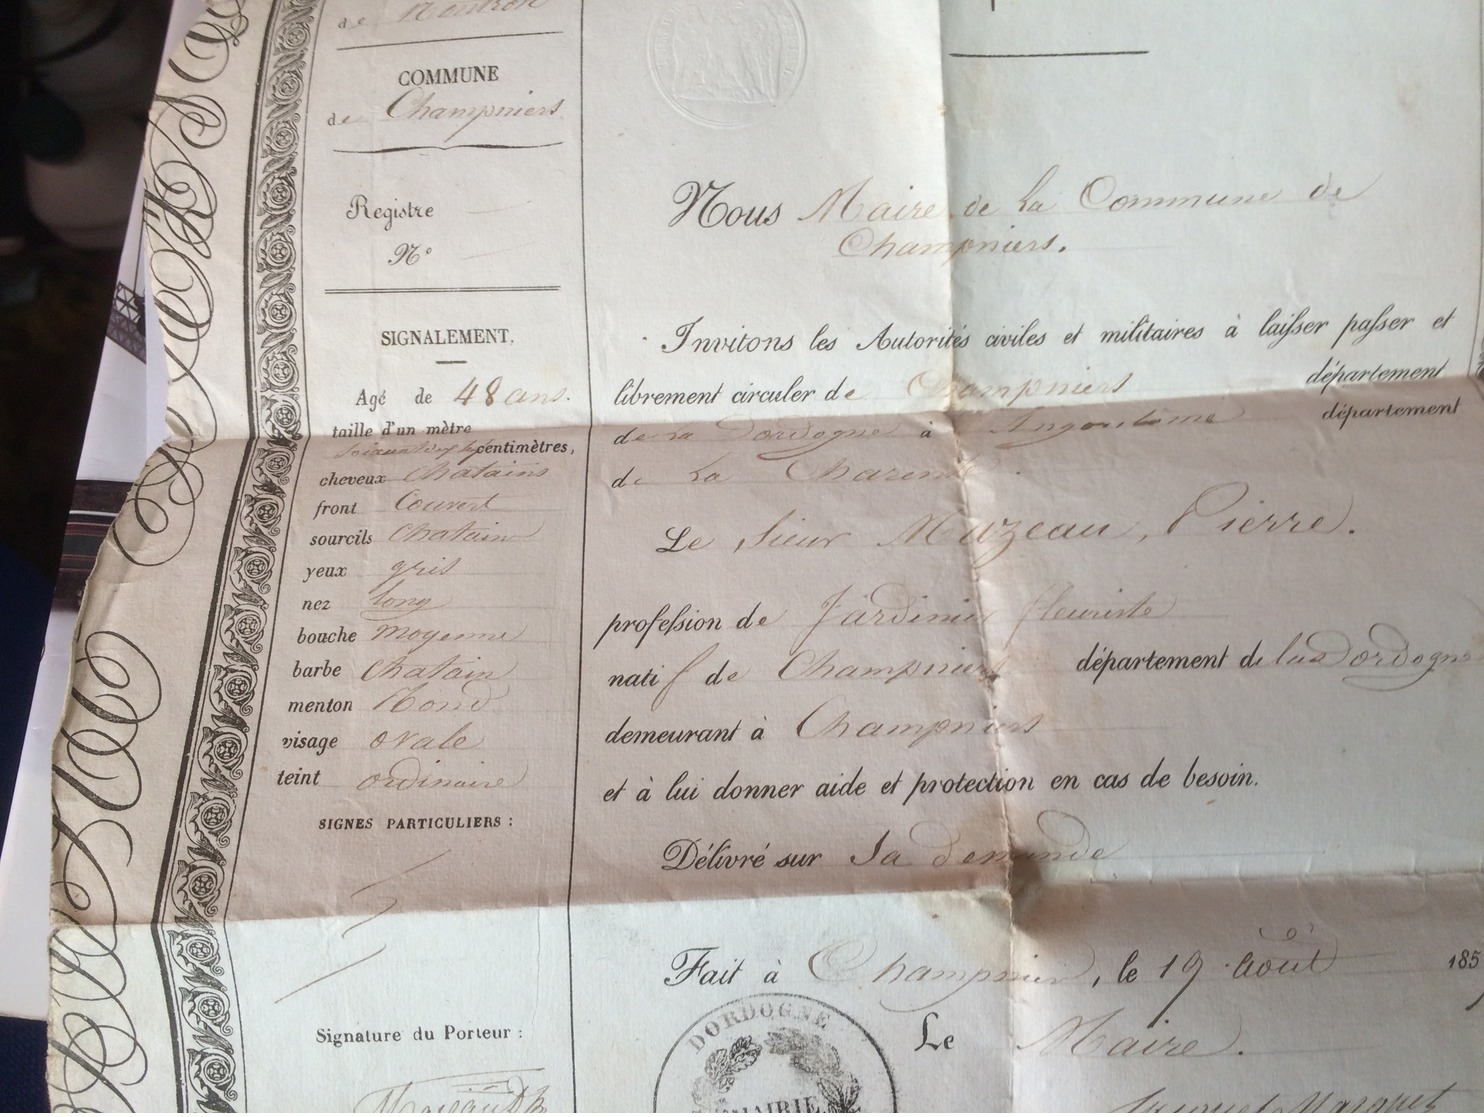 de Nontron
COMMUNE
de Champniers
Registre
N°
SIGNALEMENT.
Agé de 48 ans.
taille d'un mètre
centimètres,
cheveux Chatains
front Couvert
sourcils Chatain
yeux gris
nez long
bouche moyenne
barbe Chatain
menton Rond
visage ovale
teint ordinaire
SIGNES PARTICULIERS :
Signature du Porteur :
Nous Maire de la Commune de
Champniers.
Invitons les Autorités civiles et militaires à laisser passer et
librement circuler de Champniers département
de la Dordogne à Angoulême département
de la Charente.
Le sieur Mazeau, Pierre.
profession de Jardinier fleuriste
natif de Champniers département de la Dordogne
demeurant à Champniers
et à lui donner aide et protection en cas de besoin.
Délivré sur sa demande
Fait à Champniers, le 19 Août 185
Le Maire.
DORDOGNE
MAIRIE